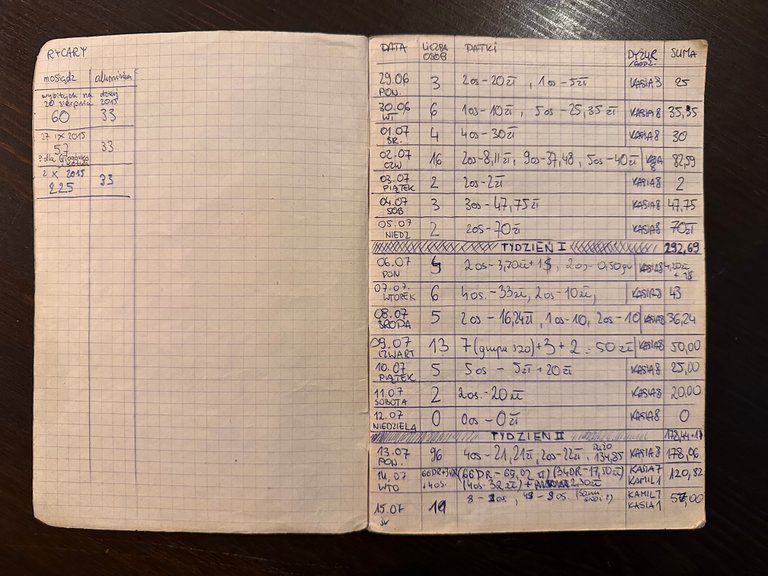 RYCARY
mosiądz aluminium
wybitych na dzień
20 sierpnia 2015
60 33
27 IX 2015
57 33
? dla Głogówka
2 X 2015
225 33
DATA LICZBA OSÓB DATKI DYŻUR /GODZ. SUMA
29.06 PON. 3 2os-20zł, 1os-5zł KASIA 8 25
30.06 WT 6 1os-10zł, 5os-25,35zł KASIA8 35,35
01.07 ŚR. 4 4os-30zł KASIA8 30
02.07 CZW 16 2os-8,11zł, 9os-37,48, 5os-40zł KASIA 8 82,59
03.07 PIĄTEK 2 2os-2zł KASIA8 2
04.07 SOB 3 3os-47,75zł KASIA8 47,75
05.07 NIEDZ 2 2os-70zł KASIA8 70zł
TYDZIEŃ I 292,69
06.07 PON 2os-3,70zł+1$, 2os-0,50gr KASIA8 4,20zł + 1$
07.07. WTOREK 6 4os.-33zł, 2os-10zł, KASIA8 43
08.07 ŚRODA 5 2os-16,24zł, 1os-10, 2os-10 KASIA8 36,24
09.07 CZWART 13 7(grupa 320)+3+2=50zł KASIA8 50,00
10.07 PIĄTEK 5 5os-5zł+20zł KASIA8 25,00
11.07 SOBOTA 2 2os-20zł KASIA8 20,00
12.07 NIEDZIELA 0 0os-0zł KASIA8 0
TYDZIEŃ II 178,44+1$
13.07 PON. 96 4os-21,21zł, 2os-22zł 134,85 KASIA8 178,06
14.07 WTO 66DR+34DR +4os. (66DR-69,02zł)(34DR-17,30zł) KASIA7 120,82
(4os-32zł)+ 2,50zł KAMIL1
15.07 ŚR 19 8-2os, KAMIL7 57,00
KASIA1